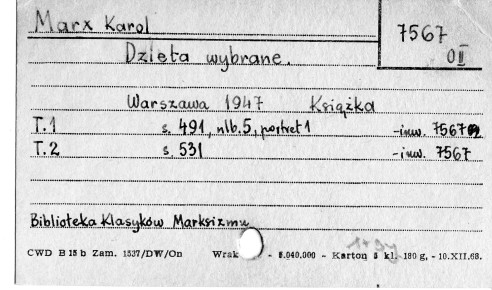 Marx Karol
7567
OII
Dzieła wybrane.
Warszawa 1947 Książka
T.1 s. 491, nlb. 5, portret 1 -inw. 7567
T.2 s. 531 -inw. 7567
Biblioteka Klasyków Marksizmu
CWD B 15 b Zam. 1537/DW/On Wrak - 8.040.000 - Karton 3 kl. 180 g, - 10.XII.68.